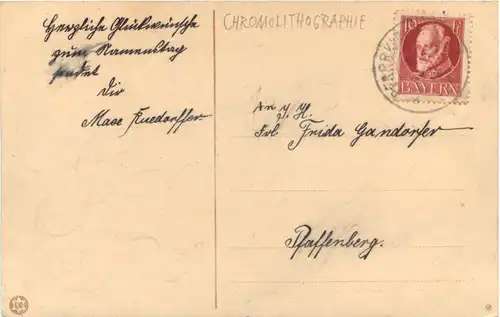 Herzliche Glückwünsche
zum Namenstag
sendet
Dir
CHROMOLITHOGRAPHIE
10 PF
BAYERN
An
Frl Frida Gandorfer
Pfaffenberg.